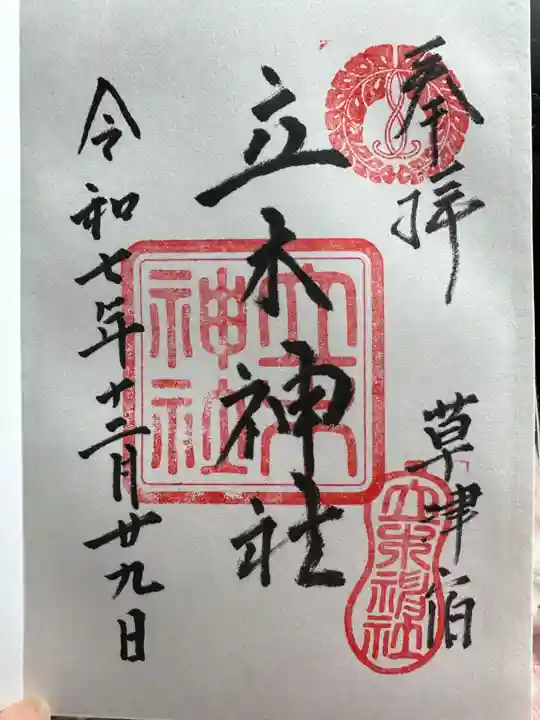 奉拝
草津宿
立木神社
立木神社
立木神社
令和七年十二月廿九日